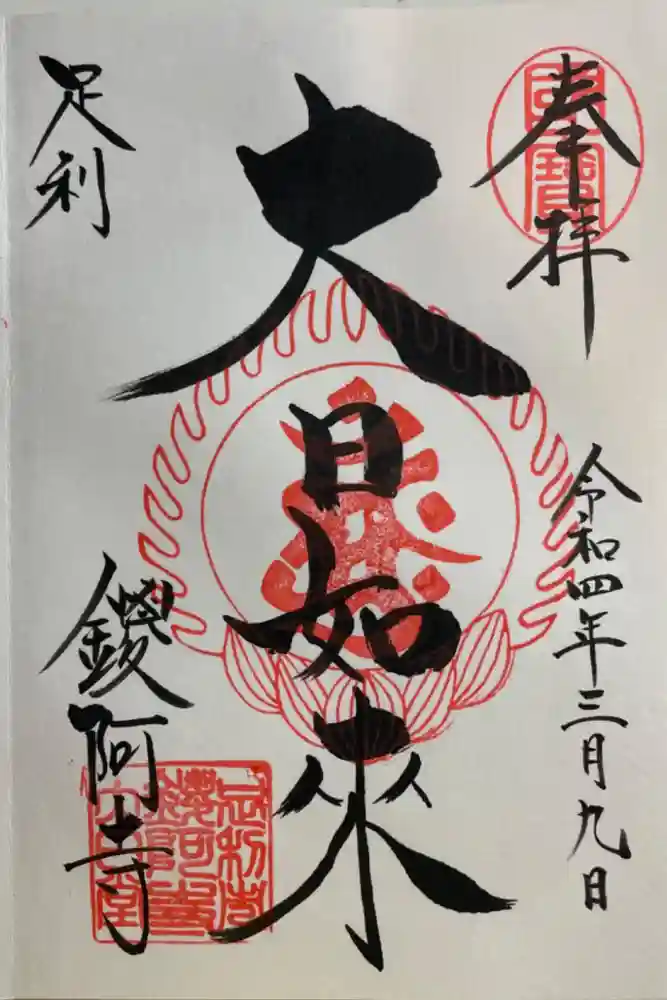 奉拝
令和四年三月九日
大日如来
足利
鑁阿寺
國寳